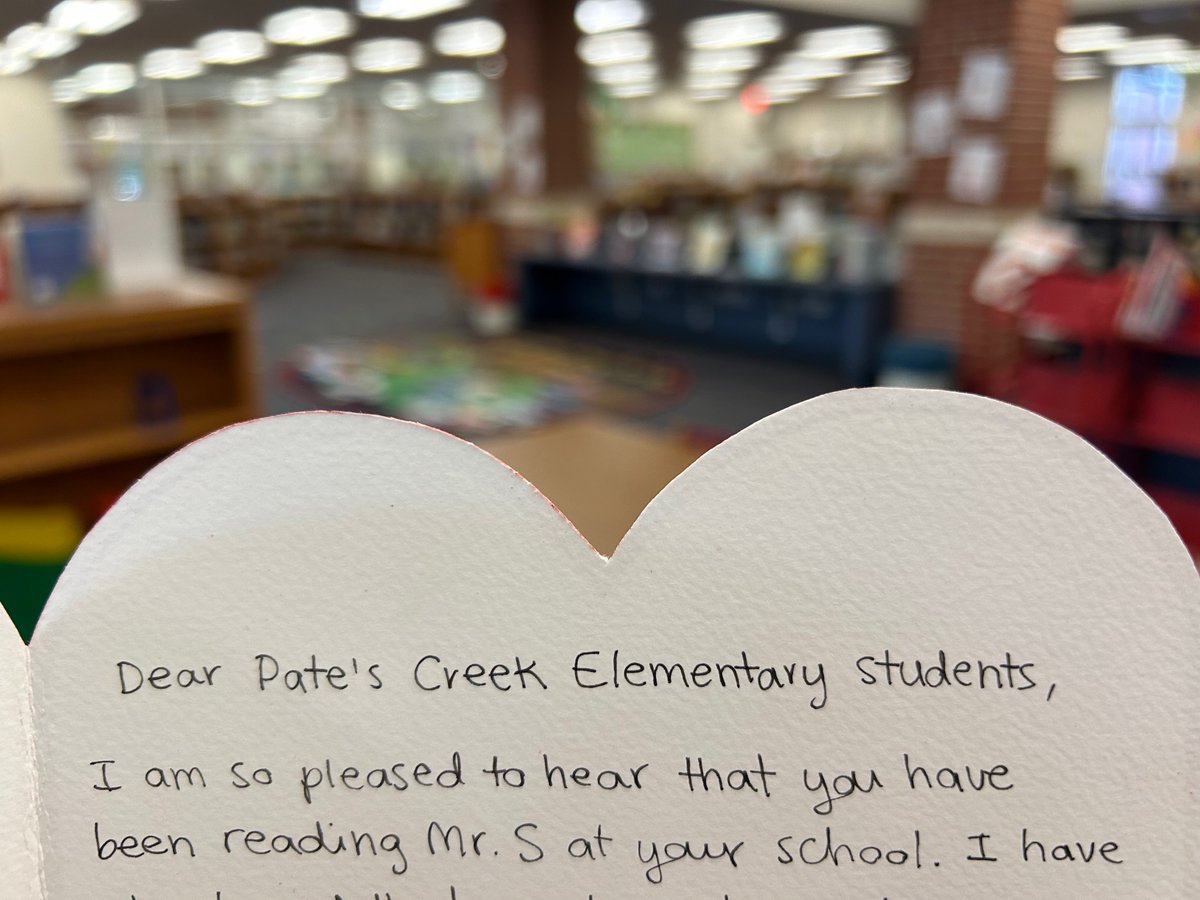 Dear Pate's Creek Elementary students,
I am so pleased to hear that you have
been reading Mr. S at your school. I have